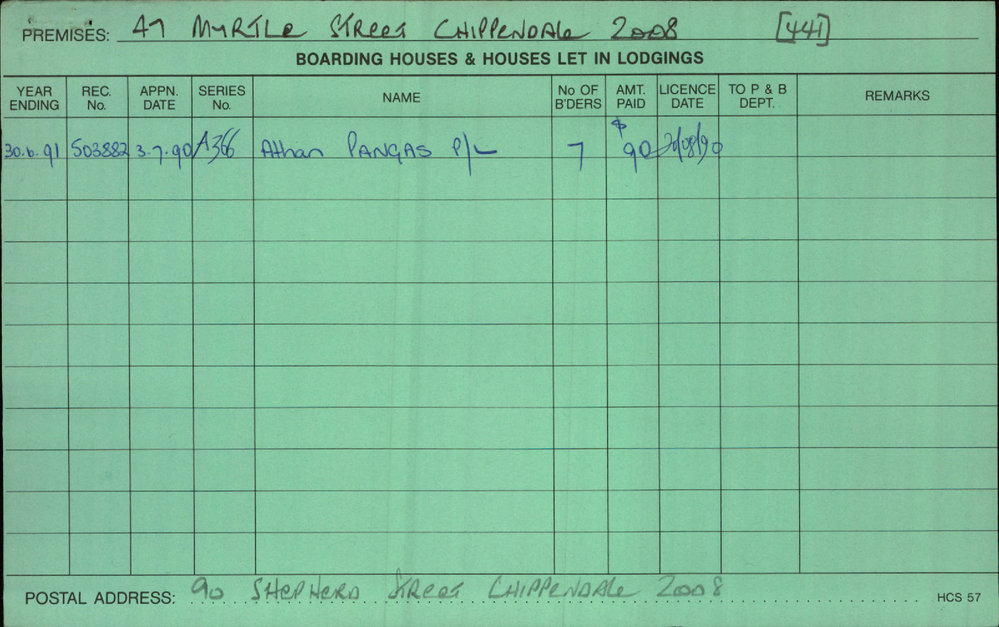 PREMISES: 47 MYRTLE STREET CHIPPENDALE 2008 [441]
BOARDING HOUSES & HOUSES LET IN LODGINGS
YEAR ENDING REC. No. APPN. DATE SERIES No. NAME No OF B'DERS AMT. PAID LICENCE DATE TO P & B DEPT. REMARKS
30.6.91 503882 3.7.90 A366 Athan PANGAS P/L 7 $90 /08/90
POSTAL ADDRESS: 90 SHEPHERD STREET CHIPPENDALE 2008 HCS 57